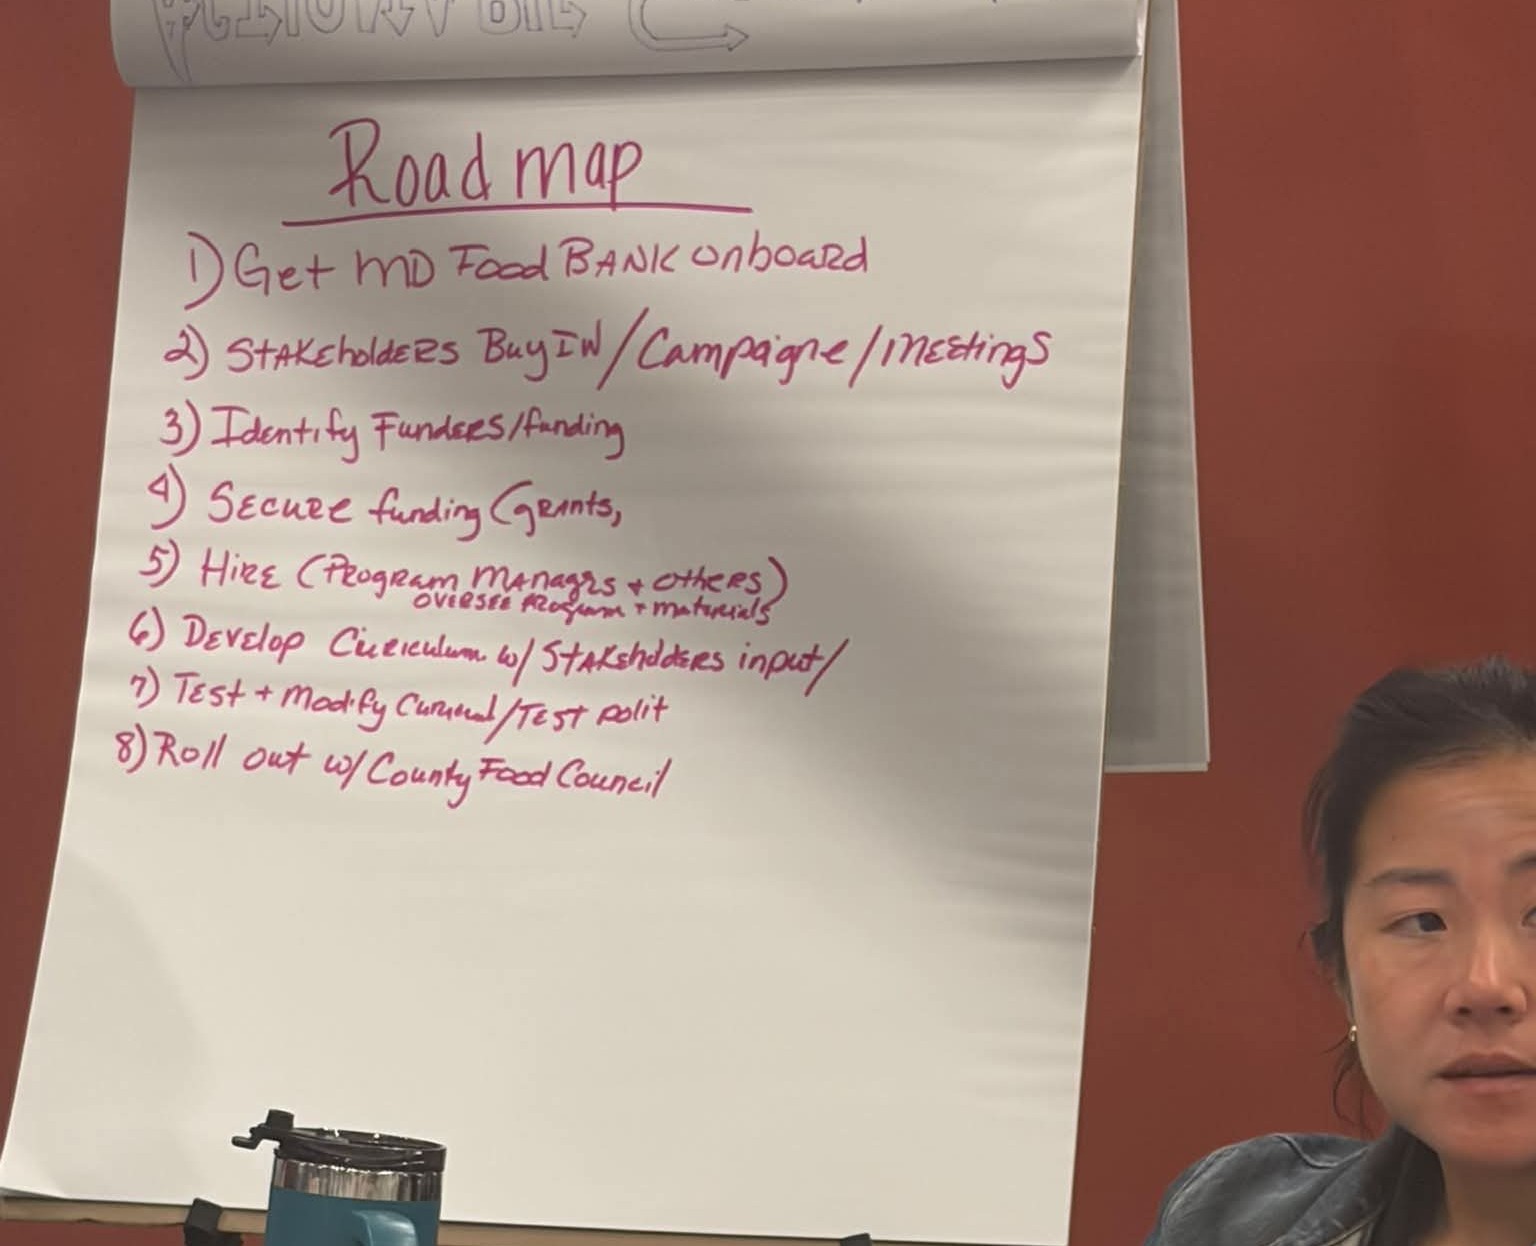 Road map
1) Get MD Food BANK onboard
2) StAKEholdERS BuyIN/Campaigne/mEEtings
3) Identify FundERS/funding
4) SECURE funding (gRAnts,
5) HiRE (PROgRam MAnagRs + othERS)
OVERSEE PROgram + matERials
6) DEVElop CuRiculum w/ StAKEholdERS input/
7) TEst + Modify /TEST polit
8) Roll out w/ County Food Council